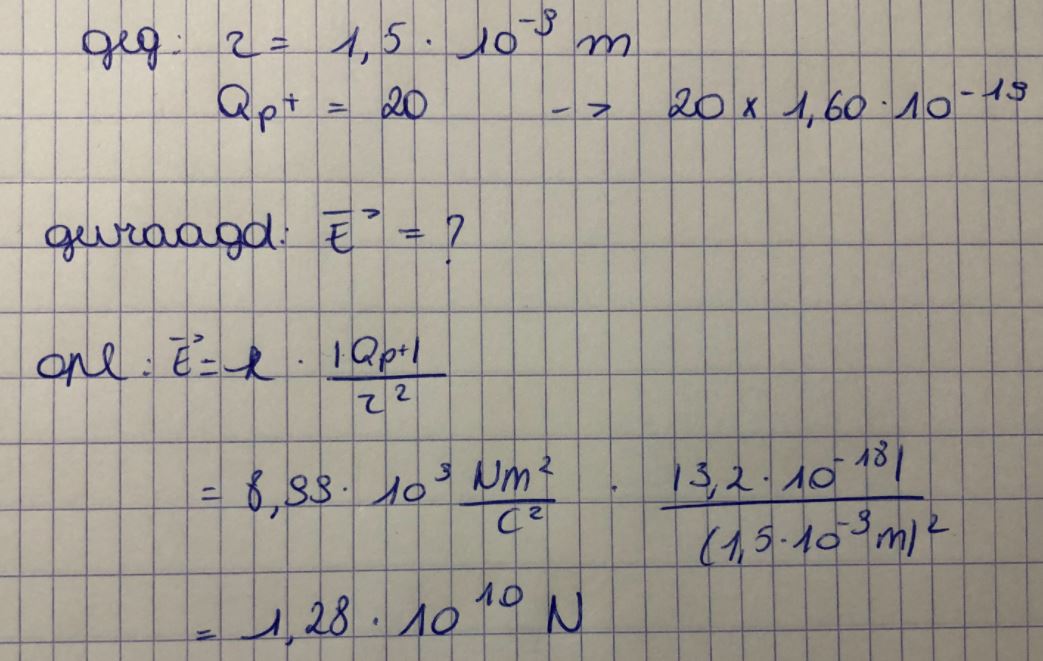 geg: r = 1,5 · 10⁻⁹ m
Qp+ = 20 -> 20 x 1,60 · 10⁻¹⁹
gevraagd: E⃗ = ?
opl: E⃗ = k · |Qp+| / r²
= 8,99 · 10⁹ Nm²/C² · |3,2 · 10⁻¹⁸| / (1,5 · 10⁻⁹ m)²
= 1,28 · 10¹⁰ N